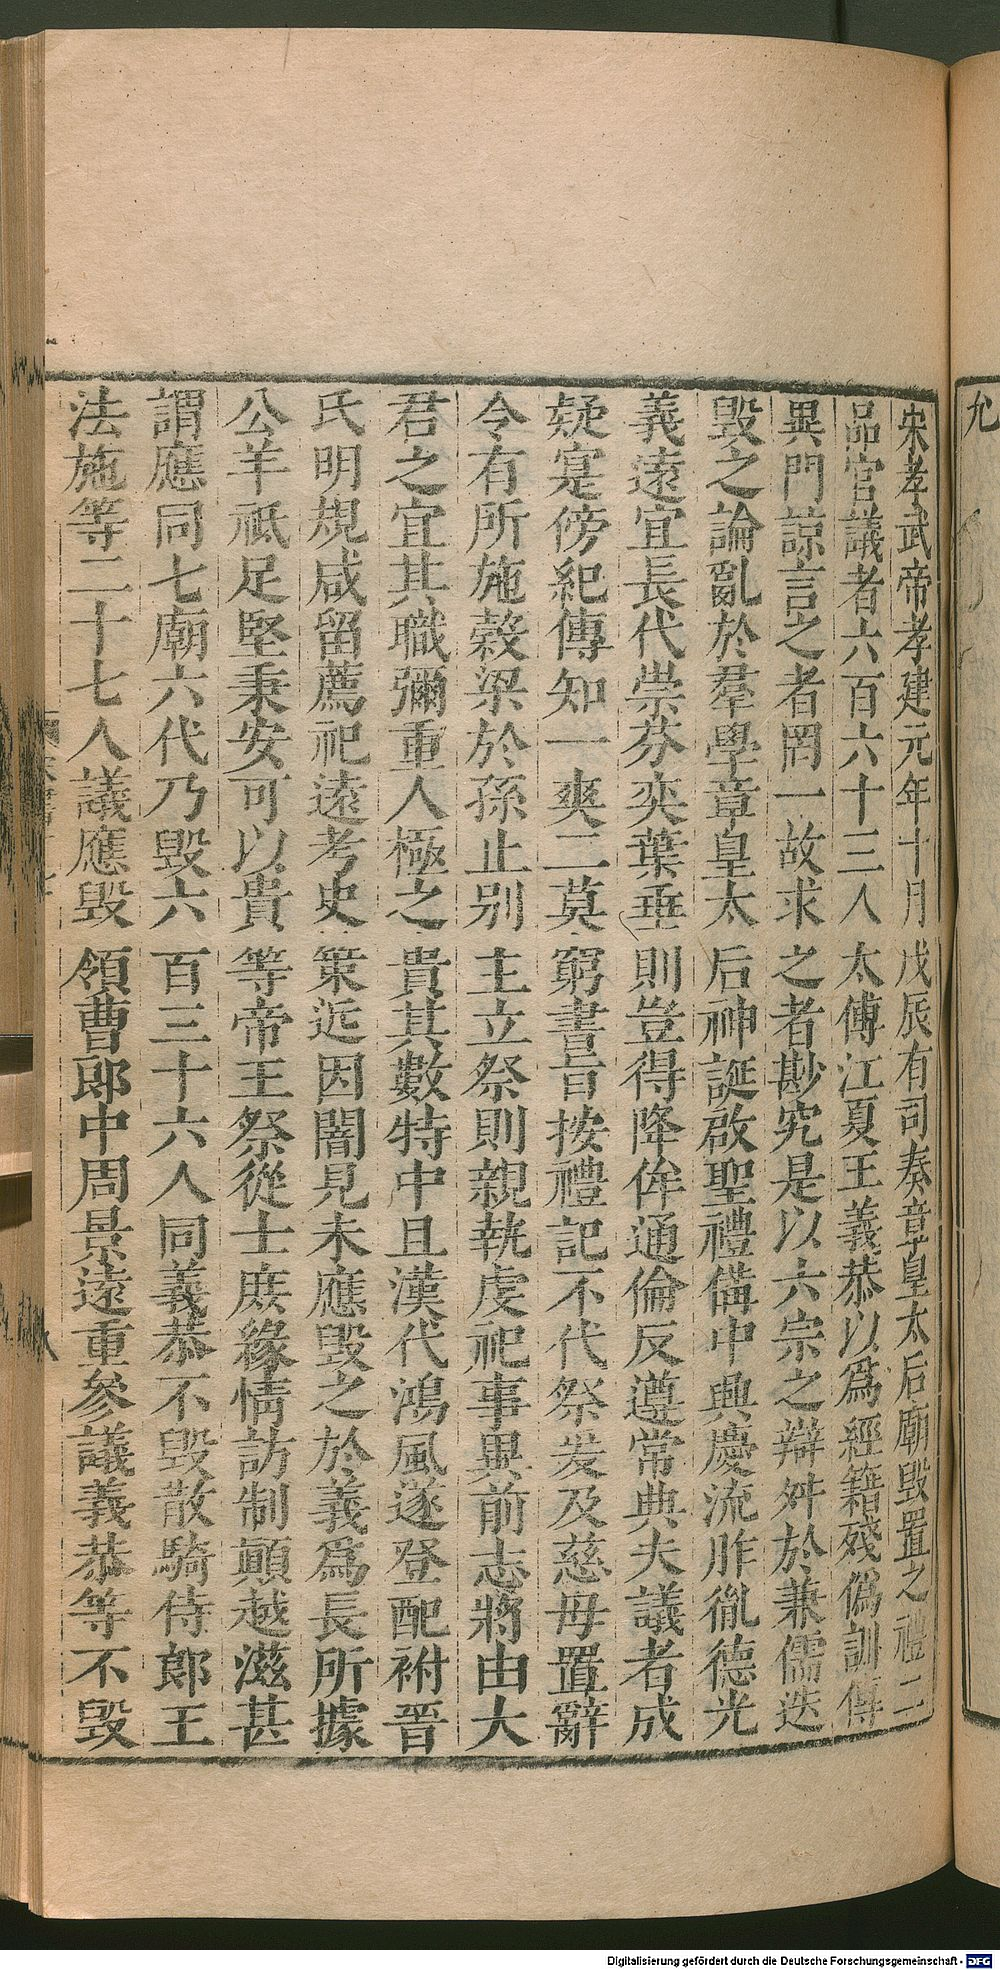 宋孝武帝孝建元年十月戊辰有司奏章皇太后廟毀置之禮二
品官議者六百六十三人太傅江夏王義恭以爲經籍殘僞訓傳
異門諒言之者罔一故求之者尠究是以六宗之辯舛於兼儒迭
毀之論亂於羣學章皇太后神誕啟聖禮備中興慶流胙胤德光
義遠宜長代崇芬奕葉垂則豈得降侔通倫反遵常典夫議者成
疑寔傍紀傳知一爽二莫窮書旨按禮記不代祭爰及慈母置辭
令有所施榖梁於孫止別主立祭則親執虔祀事異前志將由大
君之宜其職彌重人極之貴其數特中且漢代鴻風遂登配祔晉
氏明規咸留薦祀遠考史策近因闇見未應毀之於義爲長所據
公羊祇足堅秉安可以貴等帝王祭從士庶緣情訪制顛越滋甚
謂應同七廟六代乃毀六百三十六人同義恭不毀散騎侍郎王
法施等二十七人議應毀領曹郎中周景遠重參議義恭等不毀
八
允
Digitalisierung gefördert durch die Deutsche Forschungsgemeinschaft - DFG